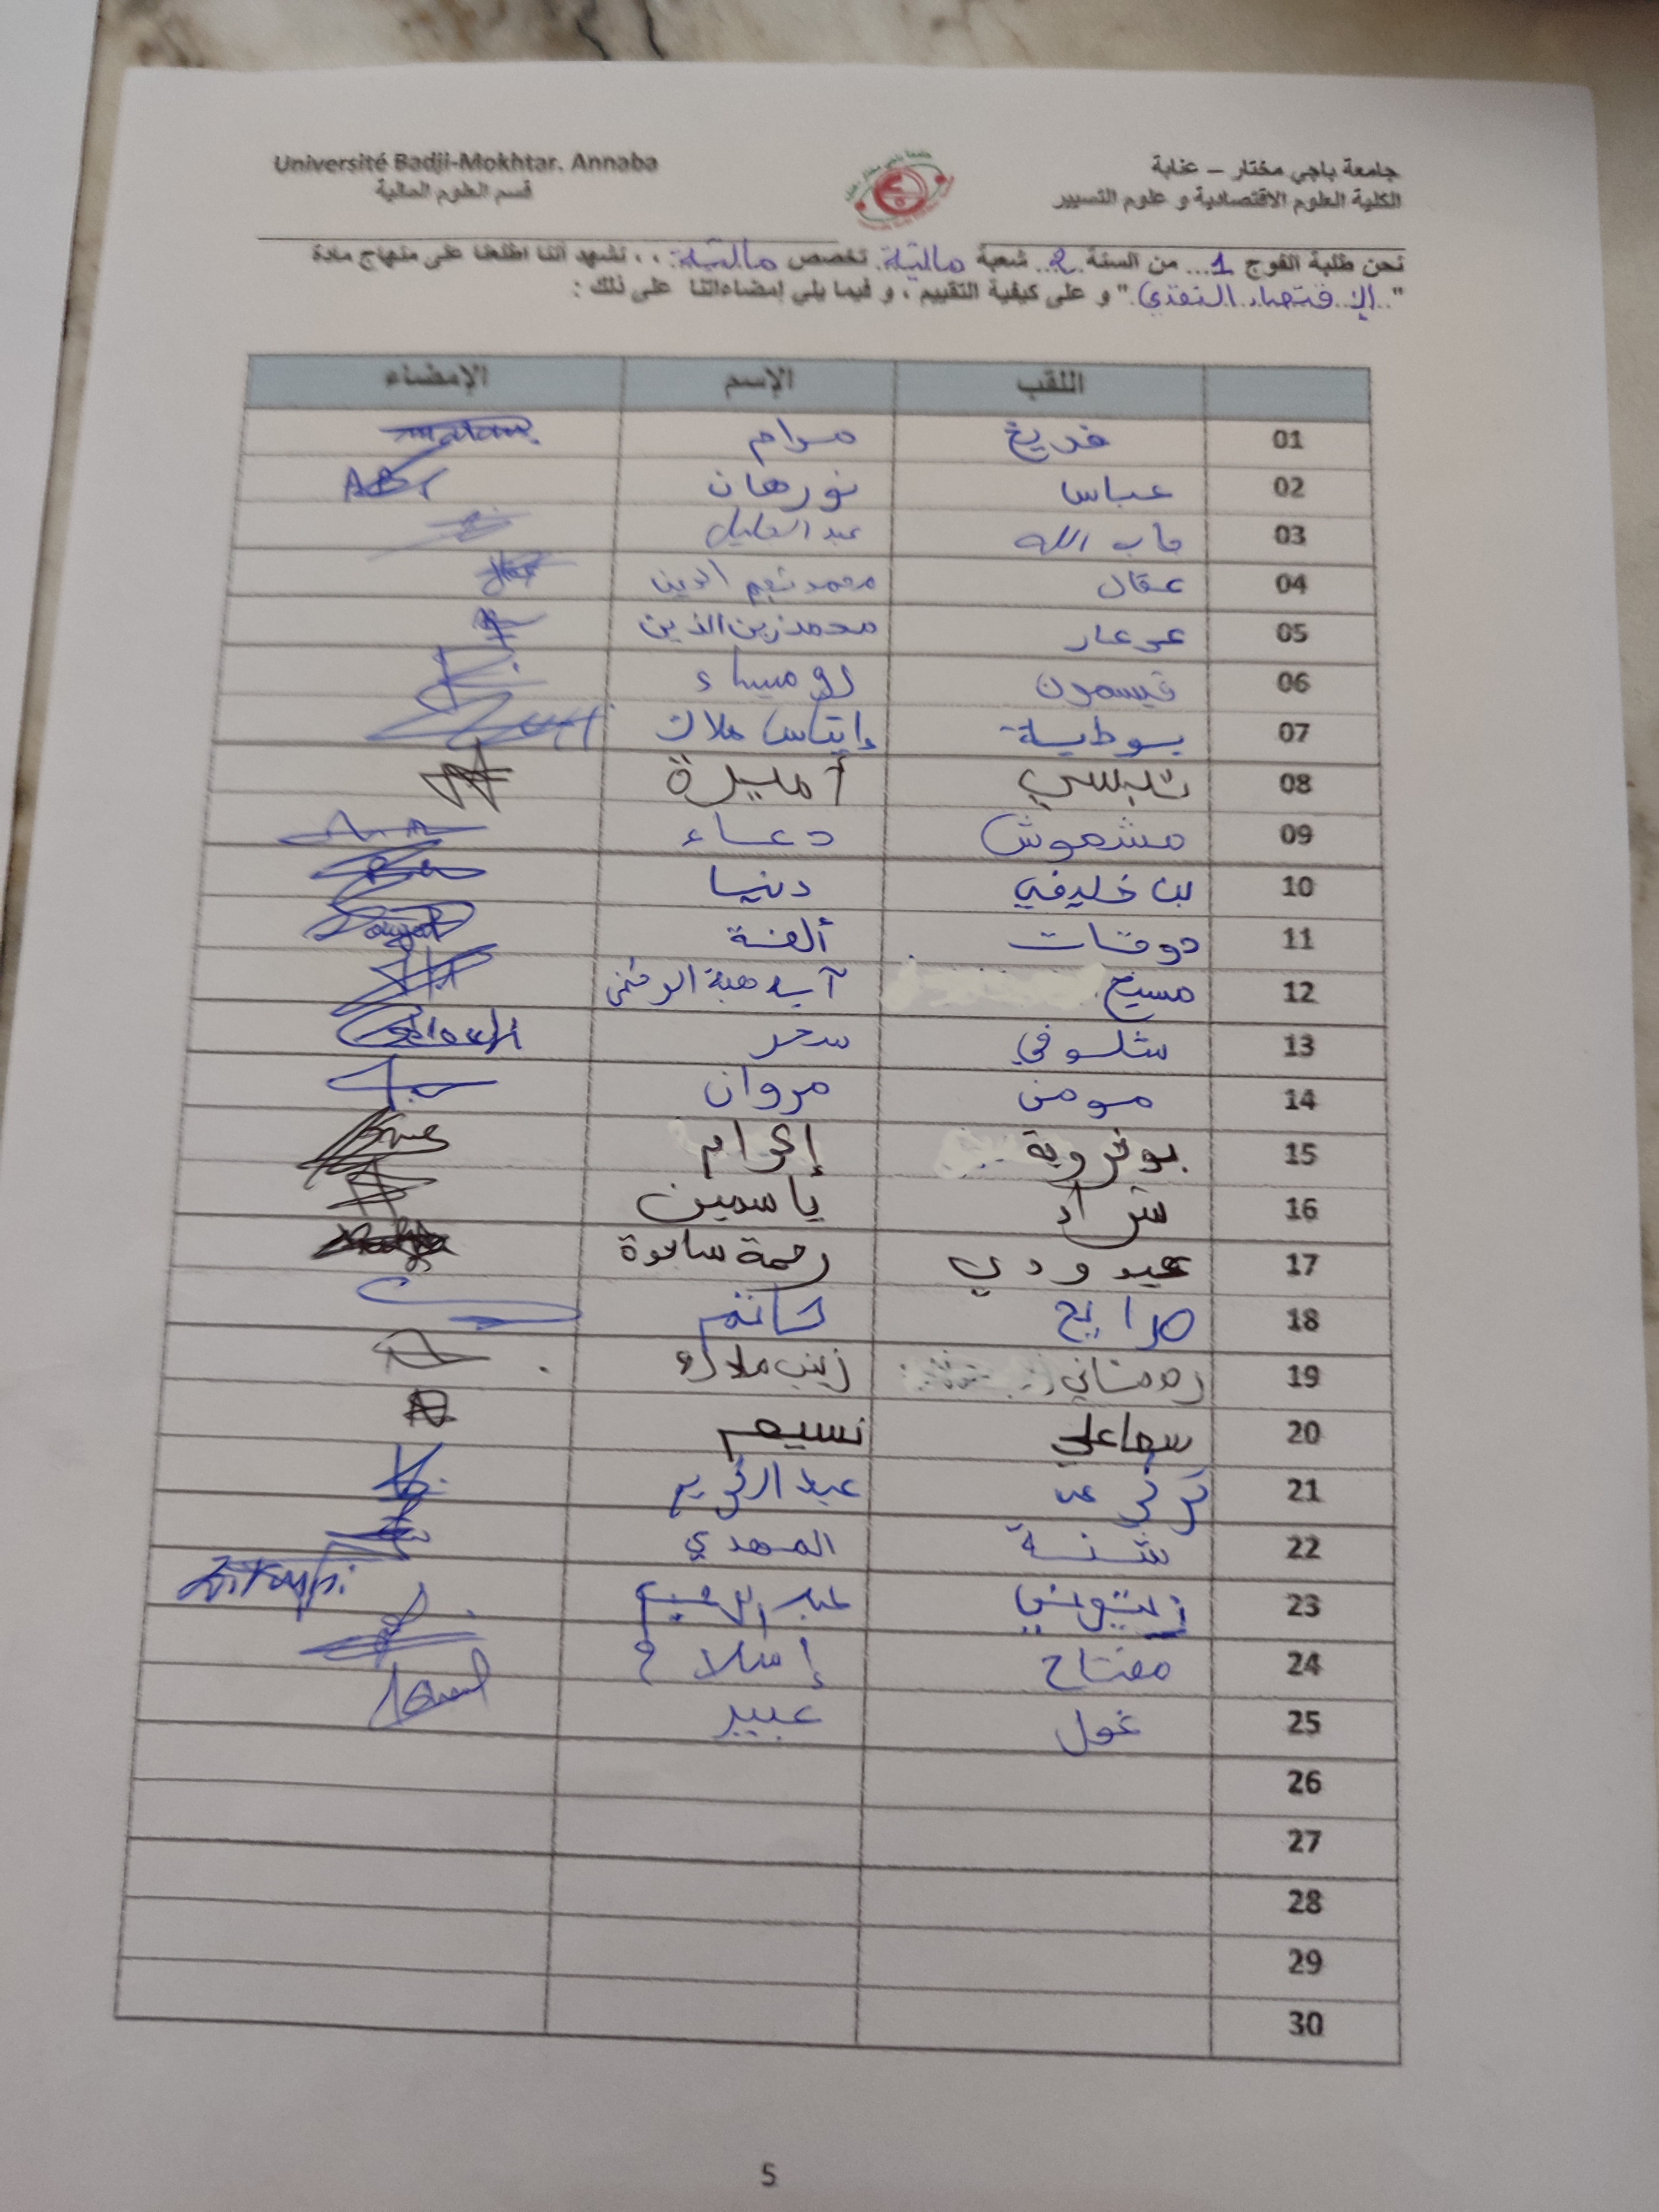 Université Badji-Mokhtar. Annaba
قسم العلوم المالية
جامعة باجي مختار – عنابة
الكلية العلوم الاقتصادية و علوم التسيير
نحن طلبة الفوج 1 من السنة 2 شعبة مالية تخصص مالية ، ، نشهد أننا اطلعنا على منهاج مادة
" الاقتصاد النقدي " و على كيفية التقييم ، و فيما يلي إمضاءاتنا على ذلك :
اللقب الإسم الإمضاء
01 مرام
02 عباس نورهان
03 جاب الله عبد الجليل
04 عقال محمد نجم الدين
05 عرعار محمد زين الدين
06 قيسمون روميساء
07 إيناس ملاك
08 تبسي أميرة
09 مشموش دعاء
10 بن خليفي دنيا
11 دوقات ألفة
12 مسيخ آية هبة الرحمن
13 شلوفي سحر
14 مومن مروان
15 إكرام
16 شراد ياسمين
17 عبدودي رحمة ساجدة
18 صرايح حاتم
19 رمضاني زينب ملاك
20 سماعلي نسيم
21 عبد الكريم
22 شنة المهدي
23 زيتوني عبد الرحيم
24 مفتاح إسلام
25 غول عبير
26
27
28
29
30
5